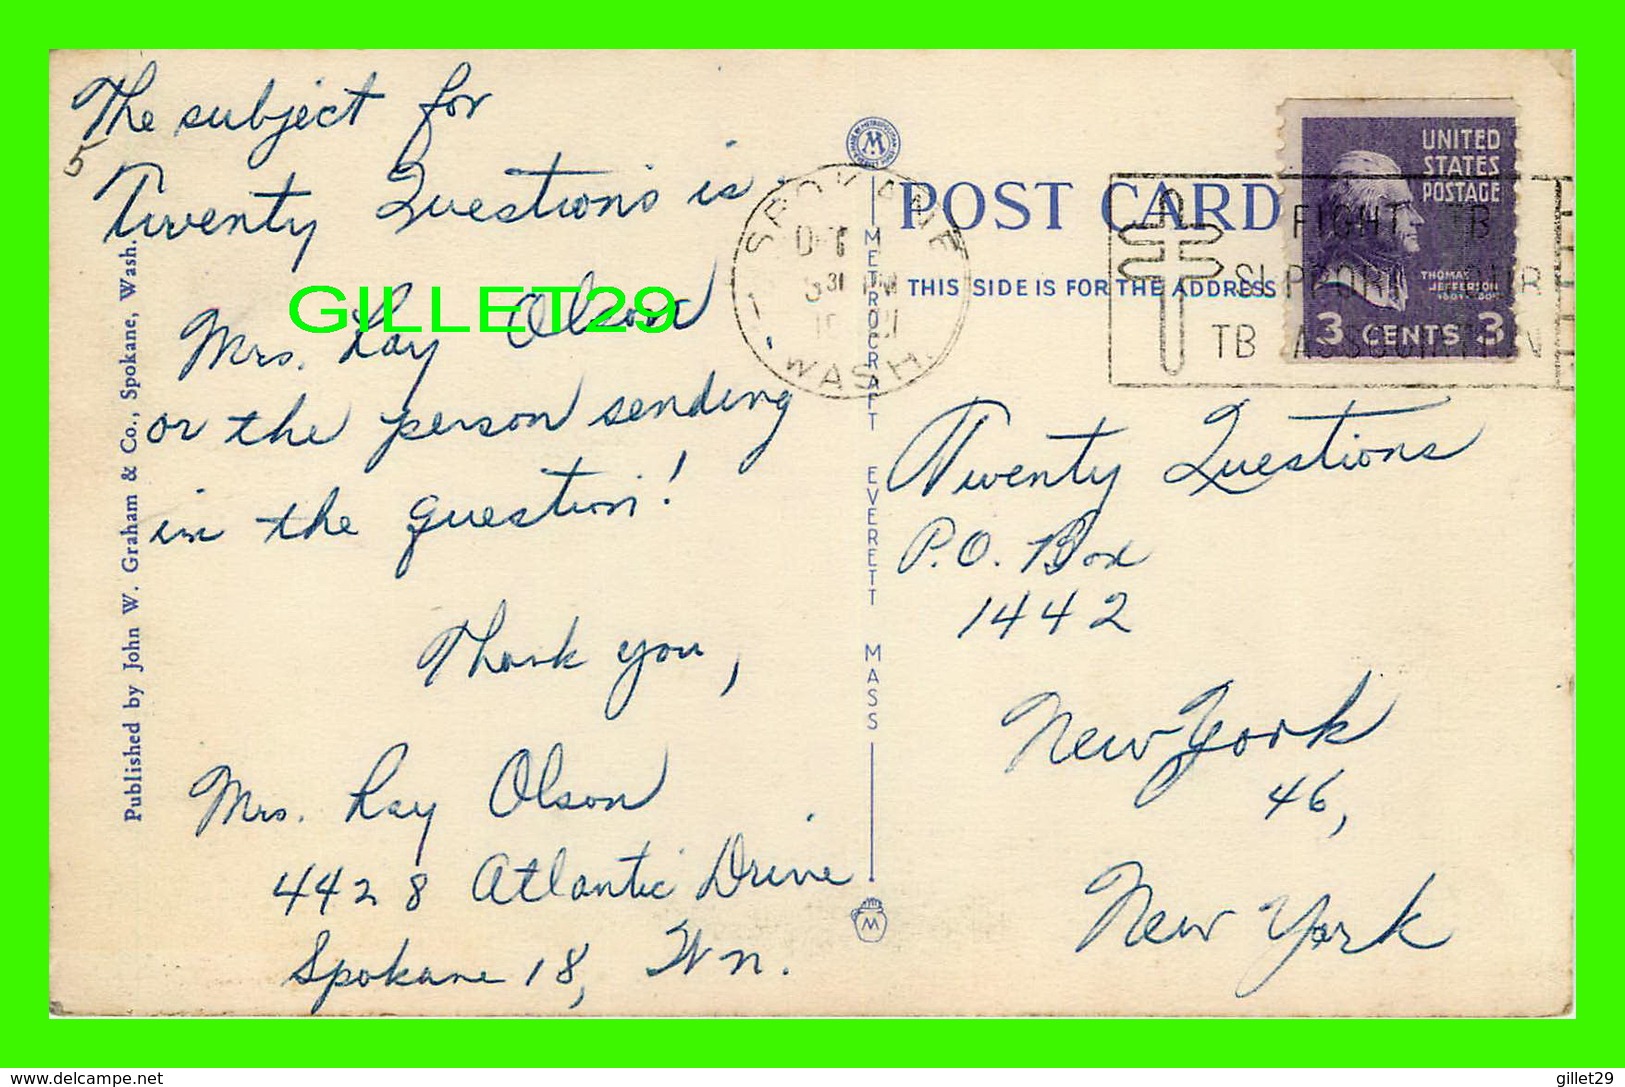 The subject for
5
Twenty Questions is
Mrs. Ray Olson
or the person sending
in the question!
Thank you,
Mrs. Ray Olson
4428 Atlantic Drive
Spokane 18, Wn.
GILLET29
Published by John W. Graham & Co., Spokane, Wash.
METROCRAFT EVERETT MASS
M
M
SPOKANE
WASH.
POST CARD
THIS SIDE IS FOR THE ADDRESS
FIGHT TB
SUPPORT YOUR
TB ASSOCIATION
UNITED
STATES
POSTAGE
THOMAS
JEFFERSON
3 CENTS 3
Twenty Questions
P.O. Box
1442
New York
46,
New York
www.delcampe.net
gillet29